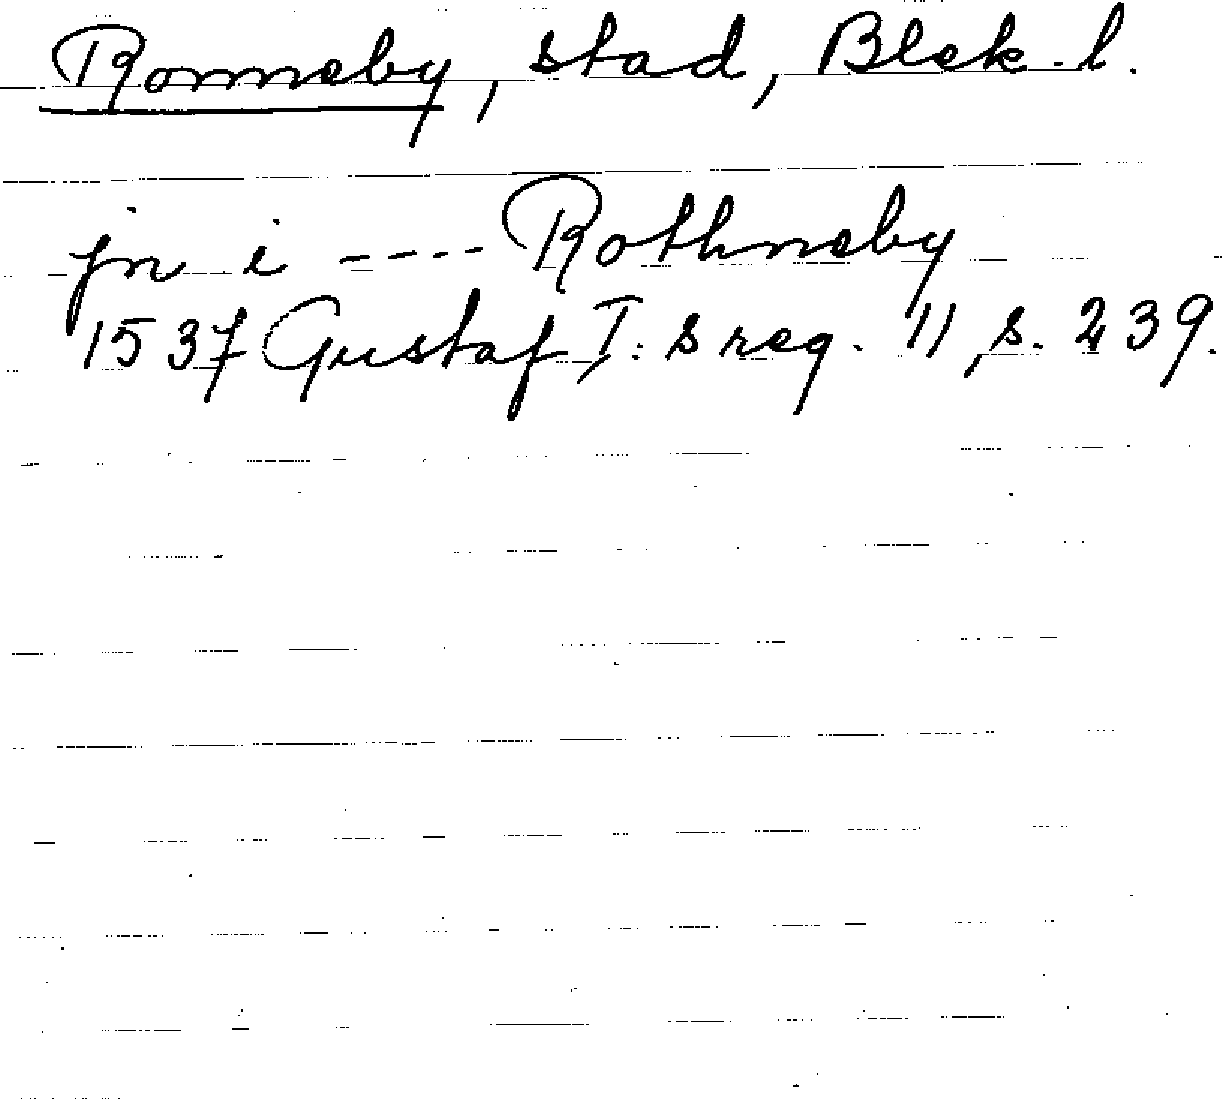 Ronneby, stad, Blek. l.
jn i ---- Rothneby
1537 Gustaf I:s reg. 11, s. 239.